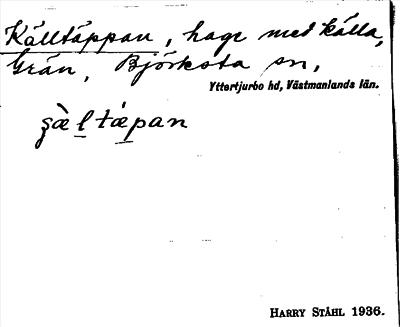 Källtäppan, hage med källa,
Grän, Björksta sn,
Yttertjurbo hd, Västmanlands län.
HARRY STÅHL 1936.